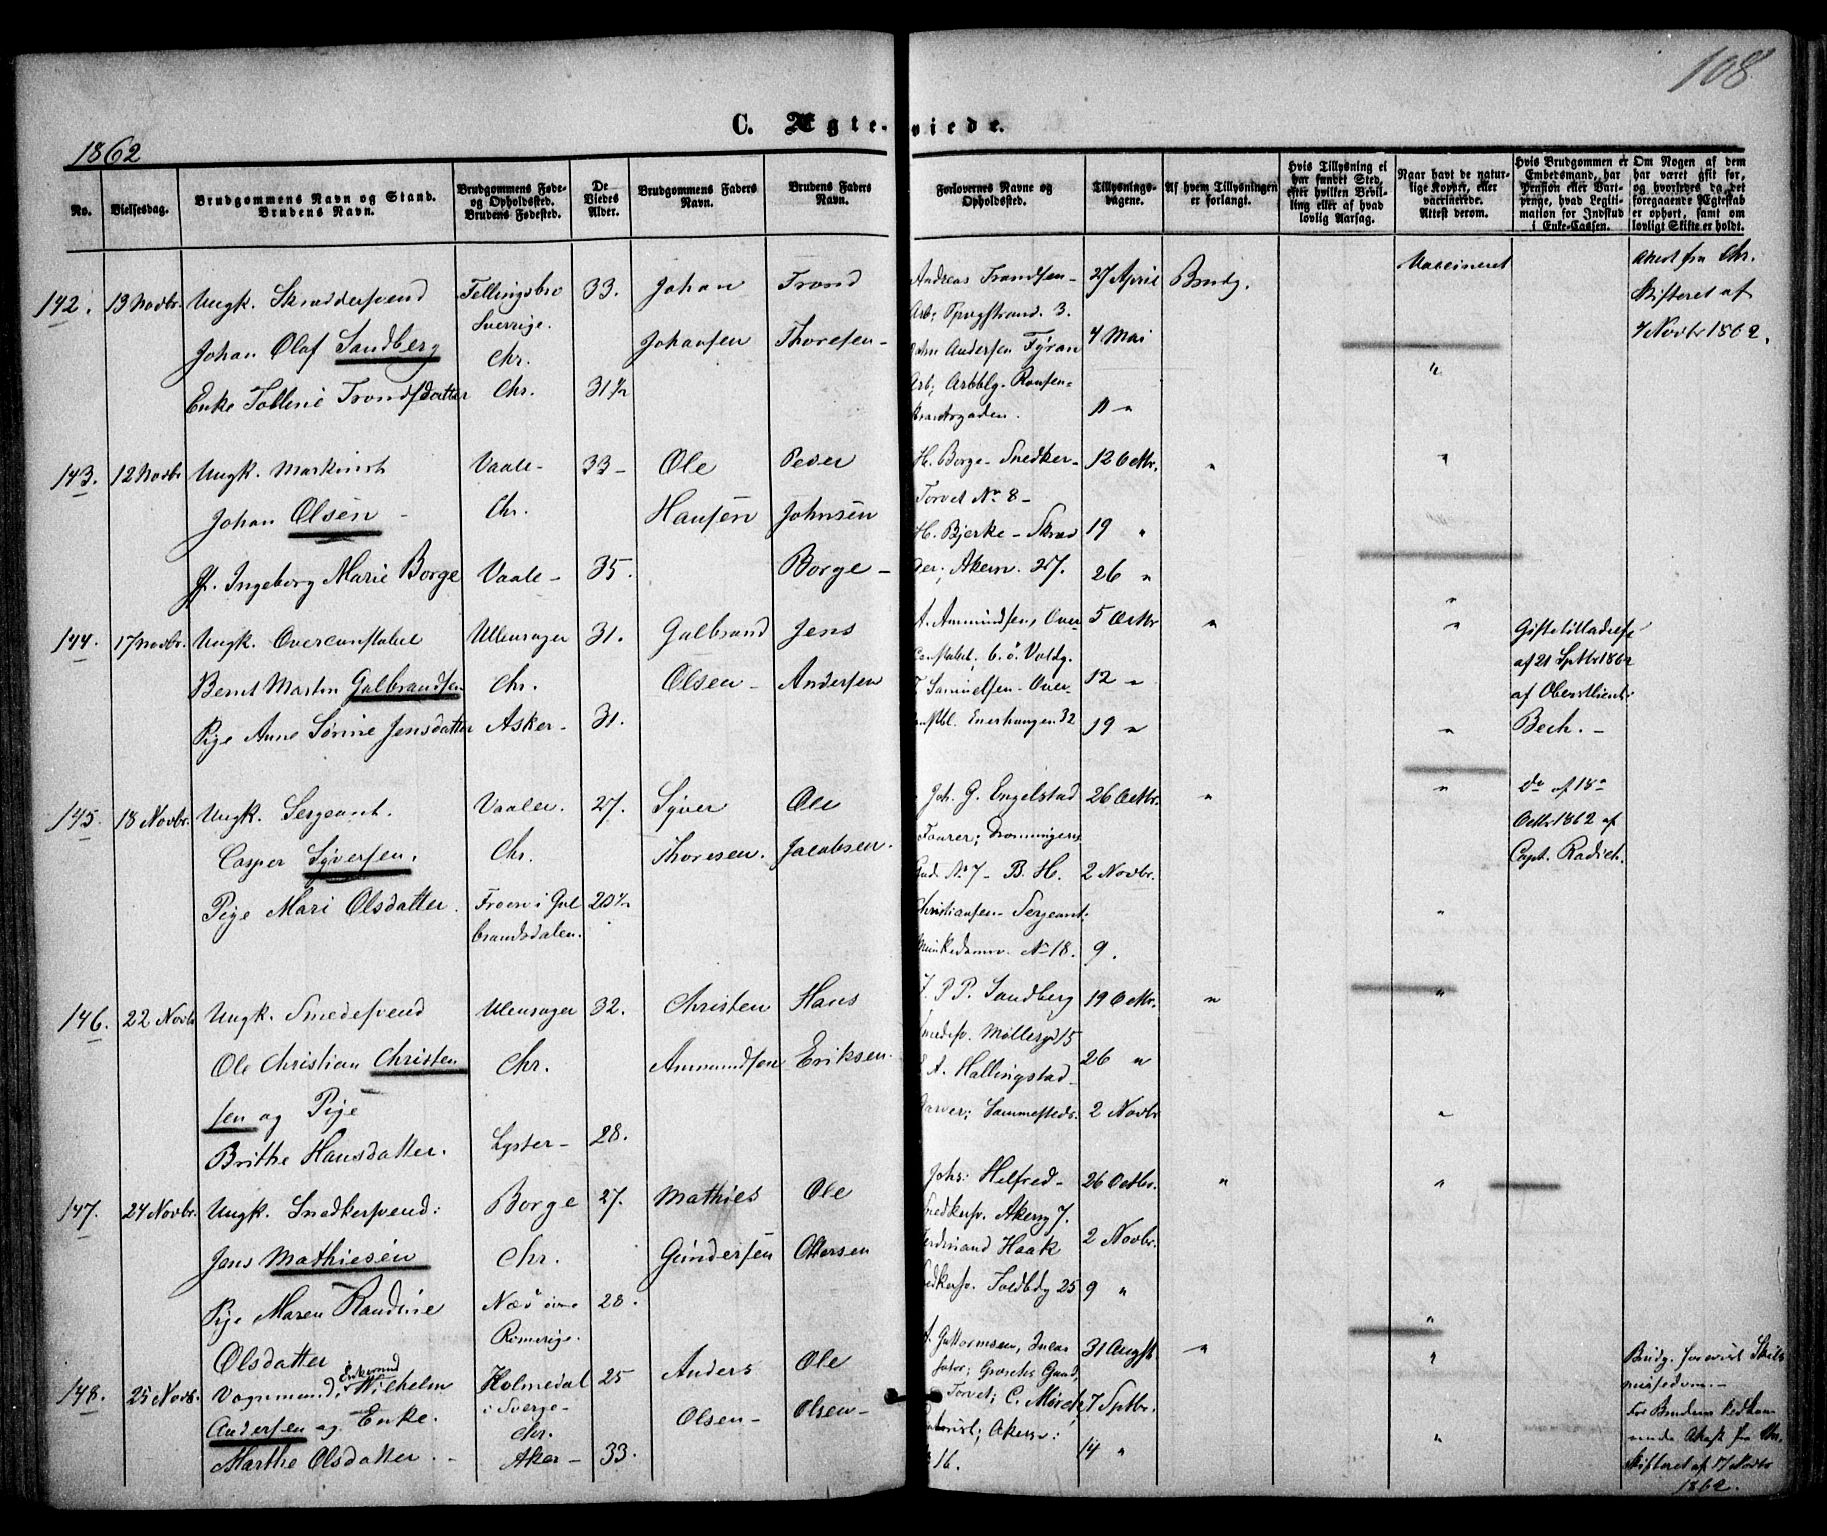 108
C. Ægteviede.
1862
No.
Vielsesdag.
Brudgommens Navn og Stand.
Brudens Navn.
Brudgommens Føde-
og Opholdssted.
Brudens Fødested.
De
Viedes
Alder.
Brudgommens Faders
Navn.
Brudens Faders
Navn.
Forlovernes Navne og
Opholdssted.
Tillysnings-
dagene.
Af hvem Tillysningen
er forlangt.
Hvis Tillysning ei
har fundet Sted,
efter hvilken Bevil-
ling eller af hvad
lovlig Aarsag.
Naar havt de natur-
lige Kopper, eller
vaccinerede.
Attest derom.
Hvis Brudgommen er
Embedsmand, har
Pension eller Vart-
penge, hvad Legiti-
mation for Indskud
i Enke-Cassen.
Om Nogen af dem
har været gift før,
og hvorledes da det
foregaaende Ægteskab
er ophørt, samt om
lovligt Skifte er holdt.
142. 13 Novbr. Ungk. Skræddersvend Fellingsbro 33. Johan Trond Andreas Trondsen - 27 April Brudg. Vaccineret Attest fra Chr.
Sverrige. Arb; 3. Skifteret af
Johan Olaf Sandberg Chr. Johansen Thoresen - Andersen Fyran 4 Mai " 4 Novbr 1862.
Enke Tolline Trondsdatter Chr. 31½ Arb;
11 "
143. 12 Novbr Ungk. Maskinist Vaale - 33 - Ole Peder H. Borge - Snedker - 12 Octbr. " "
Torvet No 8 -
Johan Olsen - Chr. Hansen Johnsen H. Bjerke - Skræd 19 "
der; Akersv. 27.
Ingeborg Marie Borge Vaale - 35. Borge - 26 " "
144. 17 Novbr. Ungk. Overconstabel Ullensager 31. Gulbrand Jens A. Ammundsen, Over 5 Octbr " " Giftetilladelse
constabel; 6. ö. Voldg. af 21 Sptbr 1862
Bernt Martin Gulbrandsen Chr. Olsen - Andersen Samuelsen - Over 12 " af Oberstlieut:
Pige Anne Sørine Jensdatter Asker - 31. Enerhaugen 32 19 " " Bech. -
145. 18 Novbr. Ungk. Sergeant. Vaaler. 27. Syver Ole Joh. G. Engelstad 26 Octbr. " " do af 18de
Fourer; Dronningens Octbr 1862 af
Casper Syversen. Chr. Thoresen. Jacobsen. Gad. No 7 - B. H. 2 Novbr. Capt. Radich.
Pige Mari Olsdatter. Froen i Gul 20½ Christiansen - Sergeant. "
brandsdalen. Munkedamsv. No 18. 9.
146. 22 Novbr Ungk. Smedesvend Ulensager 32. Christen Hans P P. Sandberg 19 Octbr. " "
Smedesv. Møllergd 15
Ole Christian Christen Chr. Ammundsen Eriksen. A. Hallingstad - 26 "
sen og Pige Garver; Sammesteds. 2 Novbr "
Brithe Hansdatter. Lyster - 28.
147. 24 Novbr. Ungk. Snedkersvend: Borge 27. Mathies Ole Johs: Helfred - 26 Octbr. " "
Snedkersv. Akersg 7.
Jens Mathiesen Chr. Gundersen Ottersen Ferdinand Haak 2 Novbr.
Snedkersv. Toldbdg 25 9 "
Pige Maren Randine Næs øvre 28. "
Olsdatter Romerige.
148. 25 Novbr. Vognmand, Enkemand Wilhelm Holmedal 25 Anders Ole A. Guttormsen, 31 Augst " " Brudg. forevist Skils
i Sverge - Grændsen Gand, missedom. -
Andersen og Enke. Chr. Olsen - Olsen - Torvet; C. Mørch, 7 Sptbr. for Brudens Vedkom
Akersv: mende Attest fra Chr.
Marthe Olsdatter. - Aker - 33. 16. 14 " " Skifteret af 17 Novbr
1862.